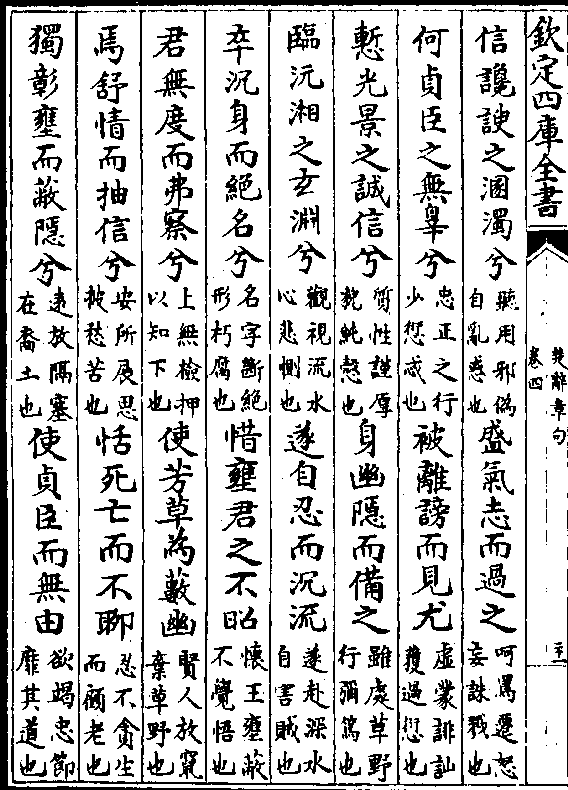 欽定四庫全書
楚辭章句
卷四
信讒諛之溷濁兮聽用邪偽自亂惑也盛氣志而過之呵罵遷怒妄誅戮也
何貞臣之無辠兮忠正之行少愆忒也被離謗而見尤虛蒙誹訕獲過愆也
慙光景之誠信兮質性謹厚貌純慤也身幽隱而備之雖處草野行彌篤也
臨沅湘之玄淵兮觀視流水心悲惻也遂自忍而沉流遂赴深水自害賊也
卒沉身而絕名兮名字斷絕形朽腐也惜壅君之不昭懷王壅蔽不覺悟也
君無度而弗察兮上無檢押以知下也使芳草為藪幽賢人放竄棄草野也
焉舒情而抽信兮安所展思被愁苦也恬死亡而不聊忍不貪生而顧老也
獨彰壅而蔽隱兮遠放隔塞在裔土也使貞臣而無由欲竭忠節靡其道也